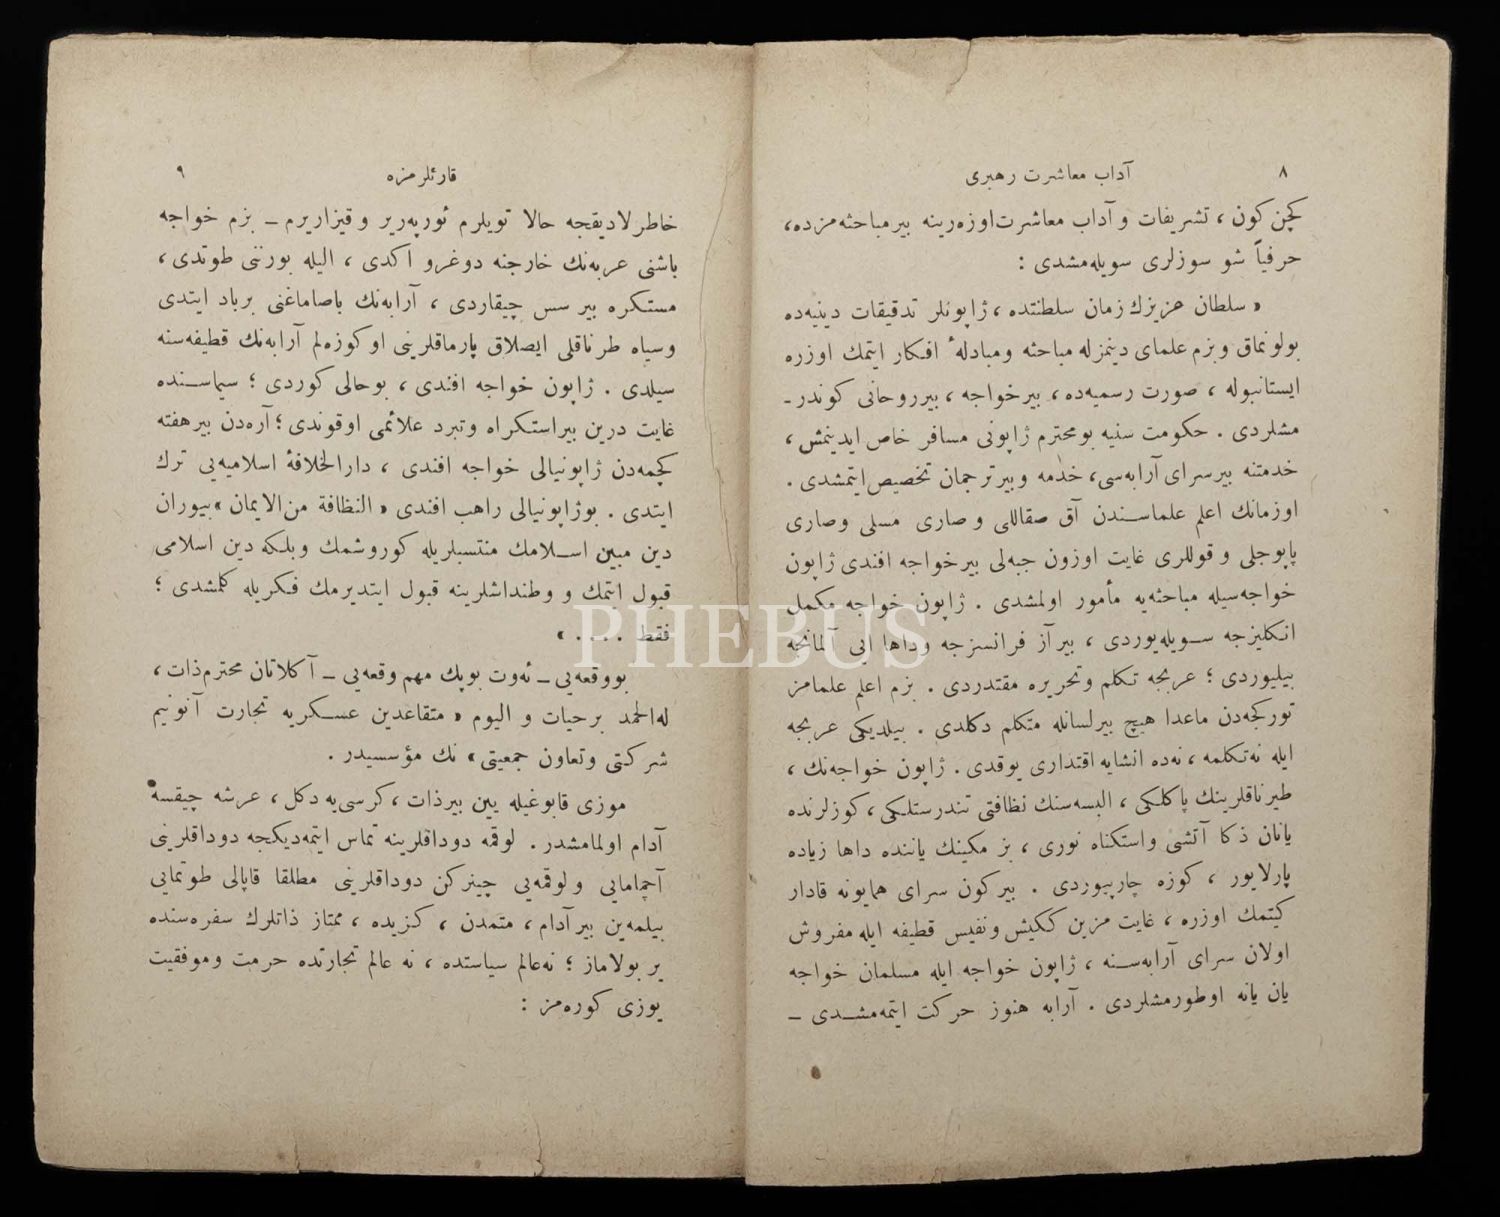 ٨
آداب معاشرت رهبری
كچن كون ، تشريفات و آداب معاشرت اوزه‌رينه بير مباحثه‌مزده ،
حرفياً شو سوزلری سويله‌مشدی :
« سلطان عزيزك زمان سلطنتده ، ژاپونلر تدقيقات دينيه‌ده
بولونماق و بزم علمای دينمزله مباحثه و مبادلهٔ افكار ايتمك اوزره
ايستانبوله ، صورت رسميه‌ده ، بير خواجه ، بير روحانی كوندر ـ
مشلردی . حكومت سنيه بو محترم ژاپونی مسافر خاص ايدينمش ،
خدمتنه بير سرای آرابه‌سی ، خدمه و بير ترجمان تخصيص ايتمشدی .
او زمانك اعلم علماسندن آق صقاللی و صاری مسلی و صاری
پاپوجلی و قوللری غايت اوزون جبه‌لی بير خواجه افندی ژاپون
خواجه‌سيله مباحثه‌يه مأمور اولمشدی . ژاپون خواجه مكمل
انكليزجه سويله‌يوردی ، بير آز فرانسزجه و داها ايی آلمانجه
بيليوردی ؛ عربجه تكلم و تحريره مقتدردی . بزم اعلم علمامز
توركجه‌دن ماعدا هيچ بير لسانله متكلم دكلدی . بيلديكی عربجه
ايله نه تكلمه ، نه‌ده انشايه اقتداری يوقدی . ژاپون خواجه‌نك ،
طيرناقلرينك پاكلكی ، البسه‌سنك نظافتی تندرستلكی ، كوزلرنده
يانان ذكا آتشی و استكناه نوری ، بزمكينك ياننده داها زياده
پارلايور ، كوزه چارپيوردی . بير كون سرای همايونه قادار
كيتمك اوزره ، غايت مزين ككيش و نفيس قطيفه ايله مفروش
اولان سرای آرابه‌سنه ، ژاپون خواجه ايله مسلمان خواجه
يان يانه اوطورمشلردی . آرابه هنوز حركت ايتمه‌مشدی ـ
قارئلرمزه
٩
خاطرلاديقجه حالا تويلرم ئورپه‌رير و قيزاريرم ـ بزم خواجه
باشنی عربه‌نك خارجنه دوغرو اكدی ، اليله بورننی طوتدی ،
مستكره بير سس چيقاردی ، آرابه‌نك باصاماغنی برباد ايتدی
و سياه طرناقلی ايصلاق پارماقلرينی او كوزه‌لم آرابه‌نك قطيفه‌سنه
سيلدی . ژاپون خواجه افندی ، بو حالی كوردی ؛ سيماسنده
غايت درين بير استكراه و تبرد علائمی اوقوندی ؛ آره‌دن بير هفته
كچمه‌دن ژاپونيالی خواجه افندی ، دار الخلافهٔ اسلاميه‌يی ترك
ايتدی . بو ژاپونيالی راهب افندی « النظافة من الايمان » بيوران
دين مبين اسلامك منتسبلريله كوروشمك و بلكه دين اسلامی
قبول ايتمك و وطنداشلرينه قبول ايتديرمك فكريله كلمشدی ؛
فقط . . . . »
بو وقعه‌يی ـ ئه‌وت بو پك مهم وقعه‌يی ـ آكلاتان محترم ذات ،
له الحمد بر حيات و اليوم « متقاعدين عسكريه تجارت آنونيم
شركتی و تعاون جمعيتی » نك مؤسسيدر .
موزی قابوغيله يين بير ذات ، كرسی‌يه دكل ، عرشه چيقسه
آدام اولمامشدر . لوقمه دوداقلرينه تماس ايتمه‌ديكجه دوداقلرينی
آچمامايی و لوقمه‌يی چينركن دوداقلرينی مطلقا قاپالی طوتمايی
بيلمه‌ين بير آدام ، متمدن ، كزيده ، ممتاز ذاتلرك سفره‌سنده
ير بولاماز ؛ نه عالم سياستده ، نه عالم تجارتده حرمت و موفقيت
يوزی كوره‌مز :
PHEBUS